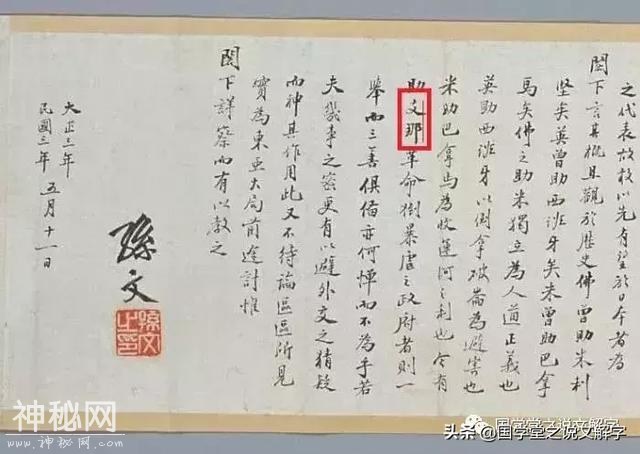 之代表故敢以先有望於日本者為
閣下言其概且觀於歷史佛曾助米利
堅矣英曾助西班牙矣米曾助巴拿
馬矣佛之助米獨立為人道正義也
英助西班牙以倒拿破崙為避害也
米助巴拿馬為收運河之利也今有
助支那革命倒暴虐之政府者則一
舉而三善俱備亦何憚而不為乎若
夫幾事之密更有以避外交之猜疑
而神其作用此又不待論區區所見
實為東亞大局前途討惟
閣下詳察而有以教之
大正三年
民國三年 五月十一日
孫文
孫文之印
神秘网
www.神秘网.com
国学堂之说文解字
头条 @国学堂之说文解字